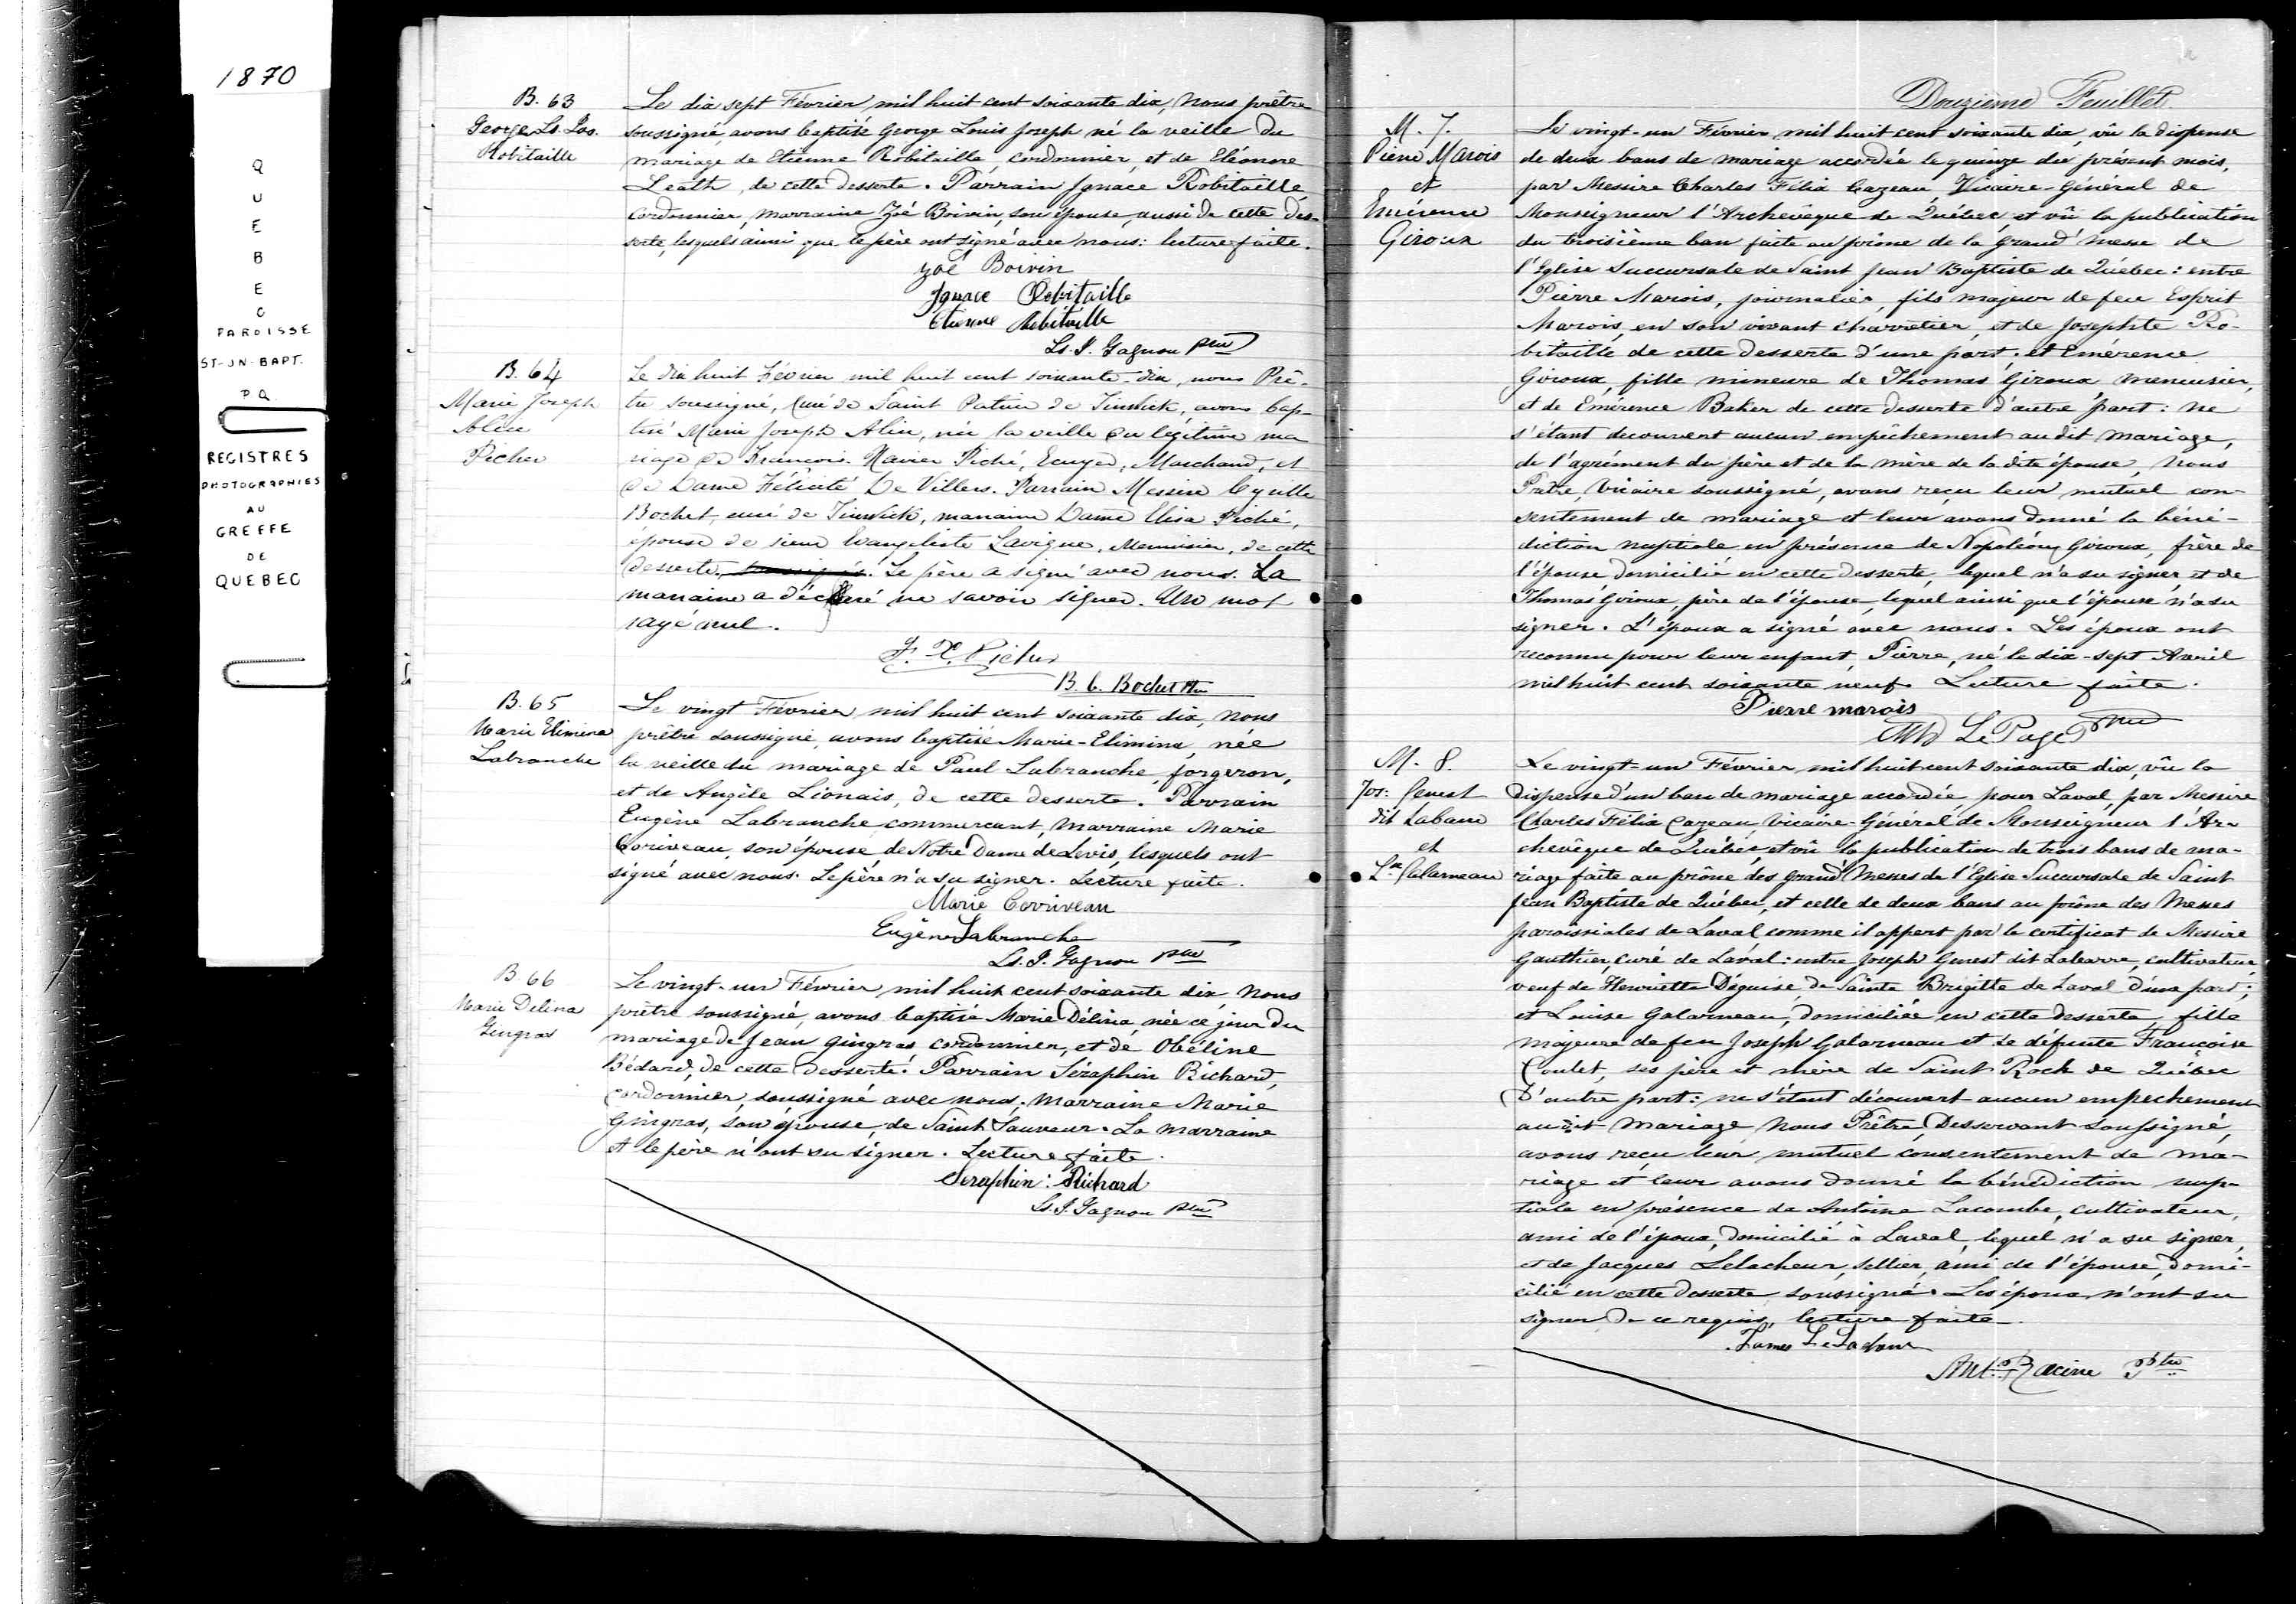 1870
QUEBEC
PAROISSE
ST-JN-BAPT.
P Q
REGISTRES
PHOTOGRAPHIES
AU
GREFFE
DE
QUEBEC
B. 63
George Ls. Jos.
Robitaille
Le dix sept Février mil huit cent soixante dix, Nous prêtre
soussigné, avons baptisé George Louis Joseph né la veille du
mariage de Etienne Robitaille, cordonnier, et de Eléonore
Leath, de cette desserte. Parrain Ignace Robitaille,
cordonnier, marraine Zoé Boivin, son épouse, aussi de cette des-
serte, lesquels ainsi que le père ont signé avec nous: lecture faite.
Zoé Boivin
Ignace Robitaille
Etienne Robitaille
Ls. J. Gagnon ptre
B. 64
Marie Joseph
Alice
Picher
Le dix huit Février mil huit cent soixante-dix, nous Prê-
tre soussigné, Curé de Saint Patrice de Tinwick, avons bap-
tisé Marie Joseph Alice, née la veille du légitime ma
riage de François Xavier Piché, Ecuyer, Marchand, et
de Dame Félicité De Villers. Parrain Messire Cyrille
Bochet, curé de Tinwick, marraine Dame Elisa Piché,
épouse de sieur Evangeliste Lavigne, Menuisier, de cette
desserte. Le père a signé avec nous. La
marraine a déclaré ne savoir signer. Un mot
rayé nul.
F. X. Picher
B. C. Bochet Ptre
B. 65
Marie Elimina
Labranche
Le vingt Février mil huit cent soixante dix, Nous
prêtre soussigné, avons baptisé Marie-Elimina, née
la veille du mariage de Paul Labranche, forgeron,
et de Angèle Lionais, de cette desserte. Parrain
Eugène Labranche commerçant, marraine Marie
Coriveau, son épouse, de Notre Dame de Levis, lesquels ont
signé avec nous. Le père n'a su signer. Lecture faite.
Marie Corriveau
Eugène Labranche
Ls. J. Gagnon ptre
B 66
Marie Delina
Gingras
Le vingt-un Février mil huit cent soixante dix, Nous
prêtre soussigné, avons baptisé Marie Délina, née ce jour du
mariage de Jean Gingras cordonnier, et de Obéline
Bédard, de cette desserte. Parrain Séraphin Richard,
cordonnier, soussigné avec nous. Marraine Marie
Gingras, son épouse, de Saint Sauveur. La marraine
et le père n'ont su signer. Lecture faite.
Seraphin: Richard
Ls. J. Gagnon ptre
Douzième Feuillet.
M. 7.
Pierre Marois
et
Emérence
Giroux
Le vingt-un Février mil huit cent soixante dix, vû la dispense
de deux bans de mariage accordée le quinze du présent mois,
par Messire Charles Félix Cazeau Vicaire-Général de
Monseigneur l'Archevêque de Québec, et vû la publication
du troisième ban faite au prône de la Grand'Messe de
l'Eglise Succursale de Saint Jean Baptiste de Québec: entre
Pierre Marois, journalier, fils majeur de feu Esprit
Marois, en son vivant charretier, et de Josephte Ro-
bitaille de cette desserte d'une part; et Emérence
Giroux, fille mineure de Thomas Giroux, menuisier,
et de Emérence Baker de cette desserte d'autre part: ne
s'étant decouvert aucun empêchement au dit mariage,
de l'agrément du père et de la mère de la dite épouse, Nous
Prêtre, Vicaire soussigné, avons reçu leur mutuel con-
sentement de mariage et leur avons donné la béné-
diction nuptiale en présence de Napoléon Giroux, frère de
l'épouse domicilié en cette desserte, lequel n'a su signer, et de
Thomas Giroux, père de l'épouse, lequel ainsi que l'épouse n'a su
signer. L'époux a signé avec nous. Les époux ont
reconnu pour leur enfant, Pierre, né le dix-sept Avril
mil huit cent soixante neuf. Lecture faite.
Pierre marois
LePage Ptre
M. 8.
Jos: Genest
dit Labarre
et
Lse Galarneau
Le vingt-un Février mil huit cent soixante dix, vû la
dispense d'un ban de mariage accordée pour Laval, par Messire
Charles Félix Cazeau, Vicaire-Général de Monseigneur l'Ar-
chevêque de Québec et vû la publication de trois bans de ma-
riage faite au prône des Grand'Messes de l'Eglise Succursale de Saint
Jean Baptiste de Québec, et celle de deux bans au prône des Messes
paroissiales de Laval comme il appert par le certificat de Messire
Gauthier, Curé de Laval: entre Joseph Genest dit Labarre, cultivateur
veuf de Henriette Déguise de Sainte Brigitte de Laval d'une part;
et Louise Galarneau, domiciliée en cette desserte, fille
majeure de feu Joseph Galarneau et de défunte Françoise
Coulet, ses père et mère de Saint Roch de Québec
D'autre part: ne s'étant découvert aucun empechement
au dit mariage, Nous Prêtre, Desservant soussigné,
avons reçu leur mutuel consentement de ma-
riage et leur avons donné la bénédiction nup-
tiale en présence de Antoine Lacombe, cultivateur,
ami de l'époux, domicilié à Laval, lequel n'a su signer,
et de Jacques Lelacheur, sellier, ami de l'épouse, domi-
cilié en cette desserte, soussigné. Les époux n'ont su
signer de ce requis, lecture faite.
James
Ant: Racine Ptre